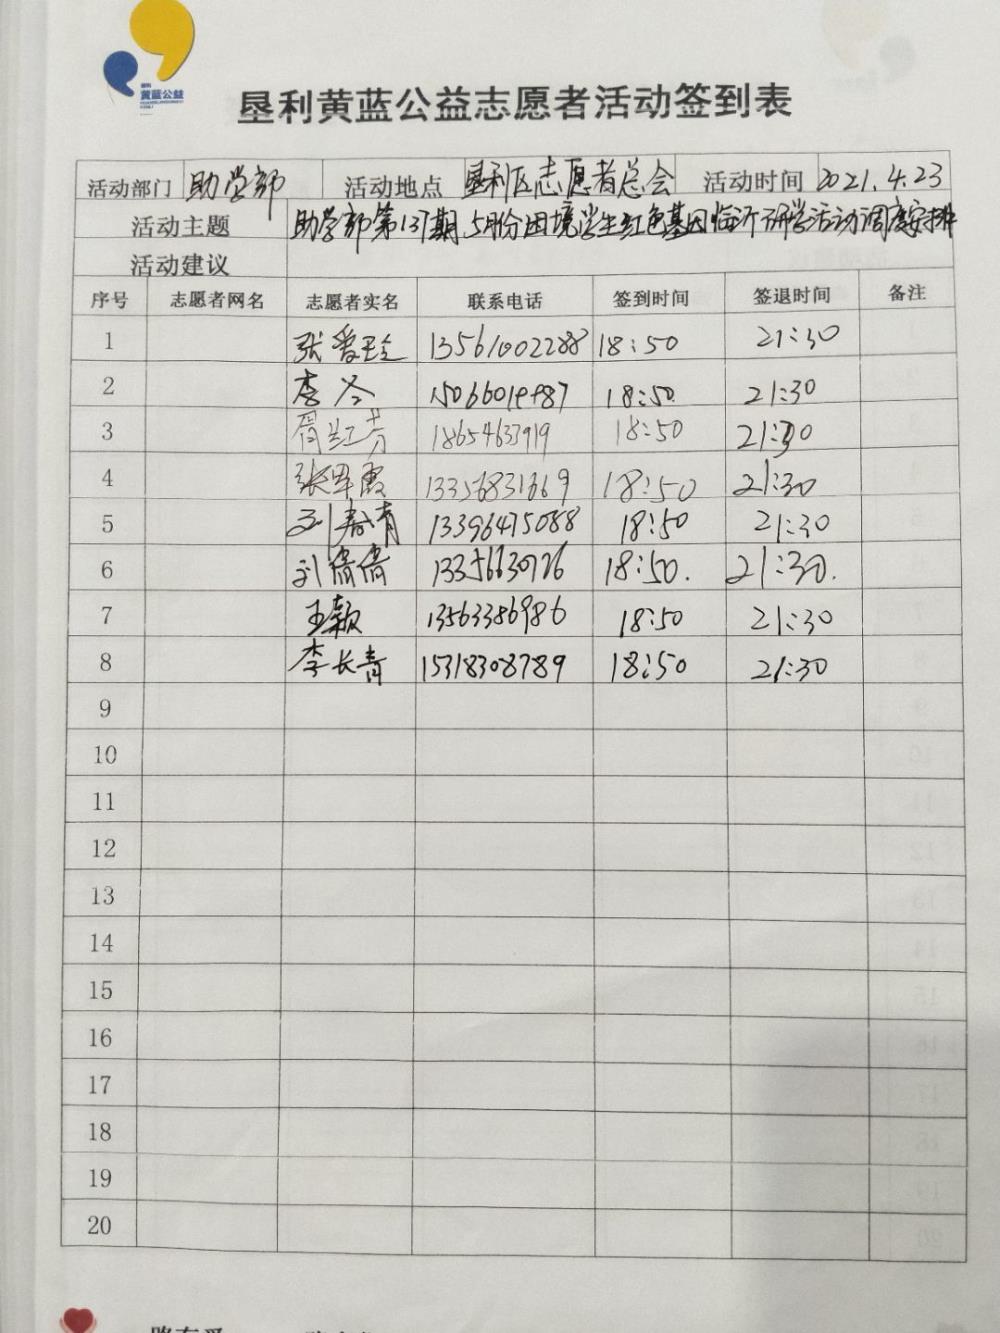 黄蓝公益
垦利黄蓝公益志愿者活动签到表
活动部门 助学部 活动地点 垦利区志愿者总会 活动时间 2021.4.23
活动主题 助学部第137期.5月份困境学生红色基因临沂研学活动调度安排
活动建议
序号 志愿者网名 志愿者实名 联系电话 签到时间 签退时间 备注
1 张爱玲 13561002288 18:50 21:30
2 李冬 18:50 21:30
3 周兰芳 18654633919 18:50 21:30
4 张军霞 18:50 21:30
5 刘春青 13396475088 18:50 21:30
6 刘倩倩 18:50. 21:30.
7 王颖 13563386986 18:50 21:30
8 李长青 15318308789 18:50 21:30
9
10
11
12
13
14
15
16
17
18
19
20